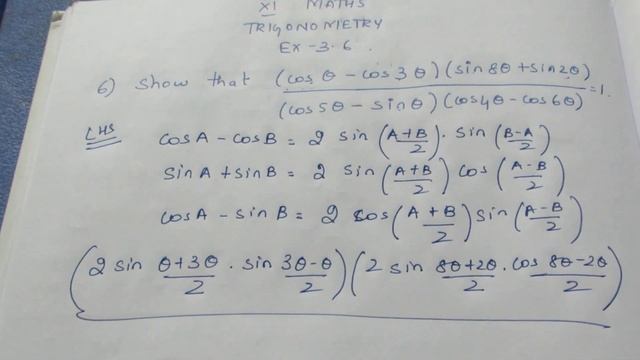 XI MATHS
TRIGONOMETRY
EX-3.6.
6) Show that (cos θ - cos 3θ) (sin 8θ + sin 2θ) / (cos 5θ - sin θ) (cos 4θ - cos 6θ) = 1.
LHS
cos A - cos B = 2 sin (A+B / 2) . sin (B-A / 2)
sin A + sin B = 2 sin (A+B / 2) cos (A-B / 2)
cos A - sin B = 2 cos (A+B / 2) sin (A-B / 2)
(2 sin θ+3θ / 2 . sin 3θ-θ / 2) (2 sin 8θ+2θ / 2 . cos 8θ-2θ / 2)